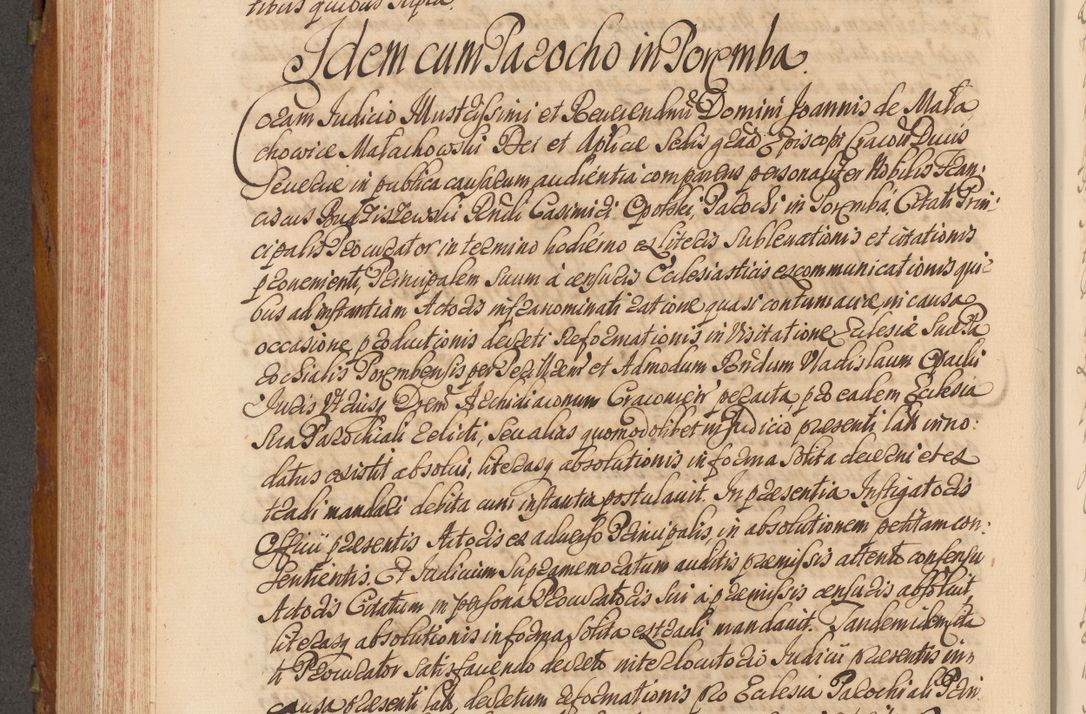 tibus quibus supra.
Idem cum Parocho in Poremba.
Coram Iudicio Illustrissimi et Reverendmi Domini Joannis de Mała
chowice Małachowski Dei et Aplicae Sedis gratia Episcopi Cracovien Ducis
Severiae in publica causarum audientia comparens personaliter Nobilis Fran
ciscus Rndi Casimiri Opolski, Parochi in Poremba, Citati Prin:
cipalis Procurator in termino hodierno ex literis sublevationis et citationis
provenienti, Principalem suum à censuris Ecclesiasticis excommunicationis qui
bus ad instantiam Actoris infranominati ratione quasi contumaciae, in causa
occasione productionis decreti Reformationis in Visitatione Eclesiae sua Pa
rochialis Porembensis per et Admodum Rndum Vladislaum Opacki
Iuris Utriusq Drem Archidiaconum Cracovien peracta pro eadem Ecclesia
sua Parochiali relicti, seu alias quomodolibet in Judicio praesenti lati inno:
datus existit absolvi, literasq absolutionis in forma solita decerni et ex
tradi mandari debita cum instantia postulavit. In praesentia Instigatoris
Officii praesentis Actoris ex adverso Principalis, in absolutionem petitam con:
sentientis. Et Iudicium supramemoratum auditis praemissis attento consensu
Actoris Citatum in persona Procuratoris sui a praemissis censuris absolvit,
literasq absolutionis in forma solita extradi mandavit. Tandem idem
Procurator satisfaciendo decreto interlocutorio Iudicii praesentis in
causa praesenti lato, decretum reformationis pro Eclesia Parochiali